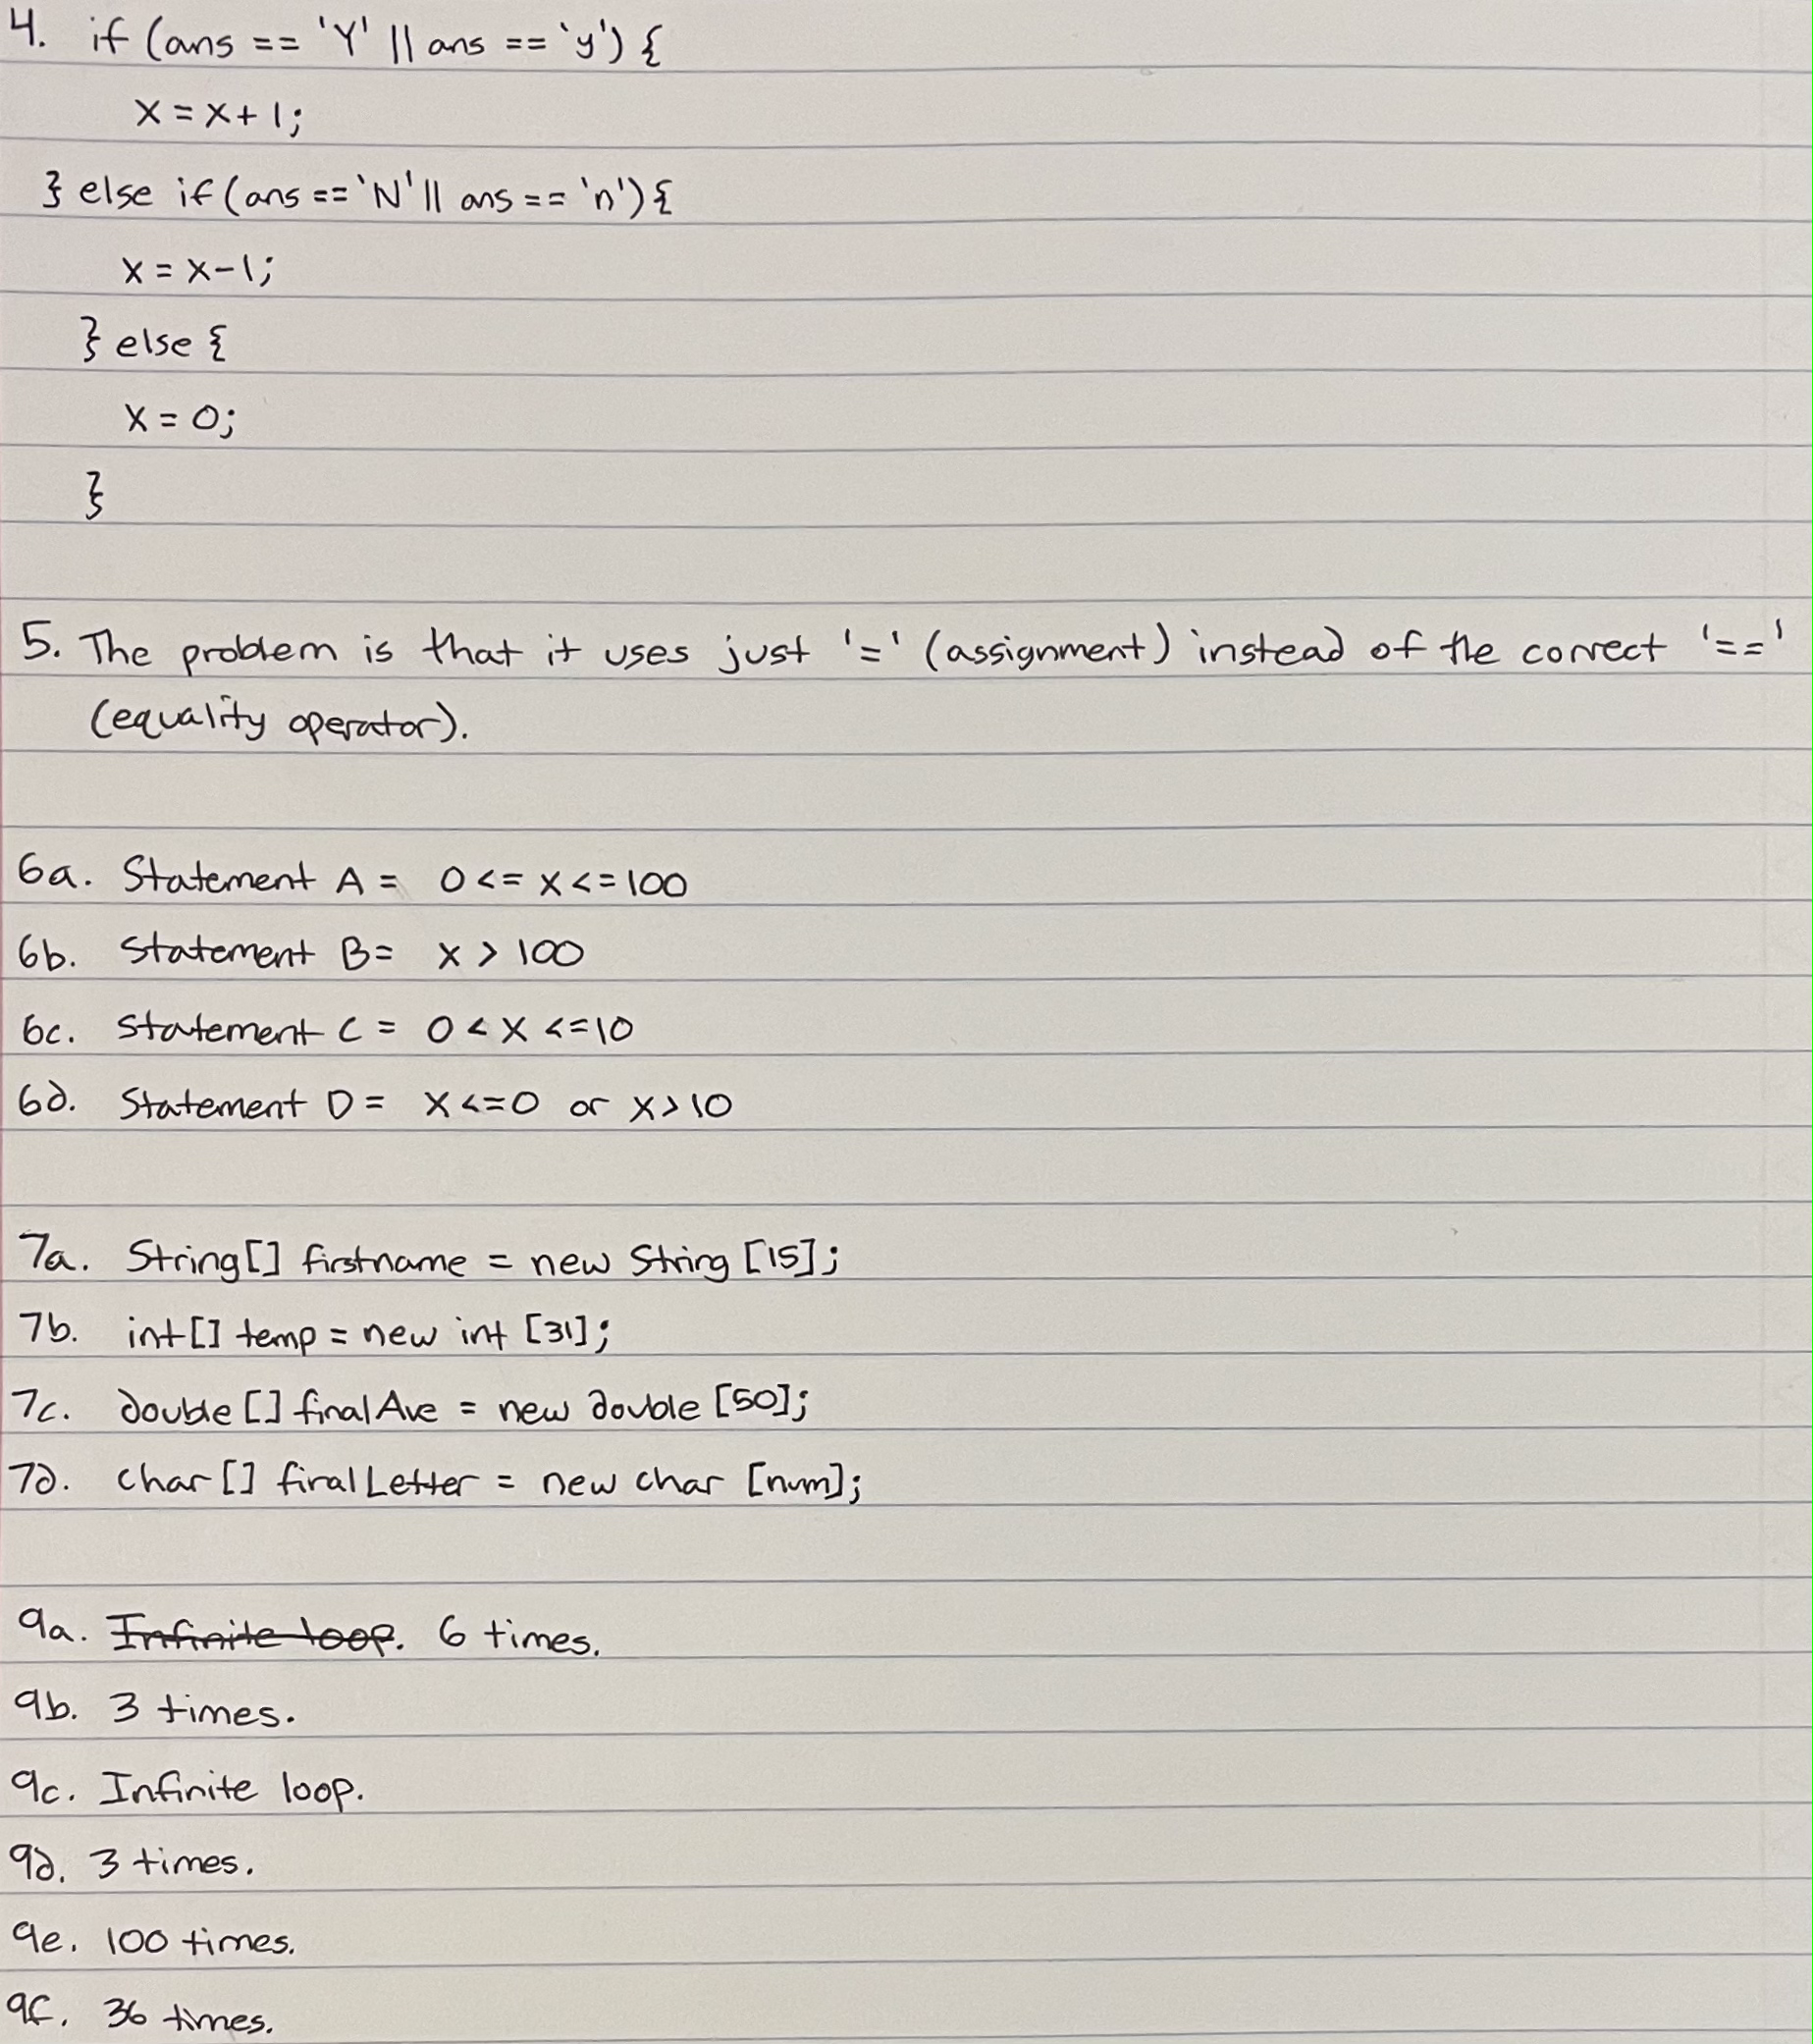 4. if (ans == 'Y' || ans == 'y') {
x = x + 1;
} else if (ans == 'N' || ans == 'n') {
x = x - 1;
} else {
x = 0;
}
5. The problem is that it uses just '=' (assignment) instead of the correct '=='
(equality operator).
6a. Statement A = 0 <= x <= 100
6b. Statement B = x > 100
6c. Statement C = 0 < x <= 10
6d. Statement D = x <= 0 or x > 10
7a. String[] firstname = new String [15];
7b. int[] temp = new int [31];
7c. double [] finalAve = new double [50];
7d. char [] finalLetter = new char [num];
9a. Infinite loop. 6 times.
9b. 3 times.
9c. Infinite loop.
9d. 3 times.
9e. 100 times.
9f. 36 times.